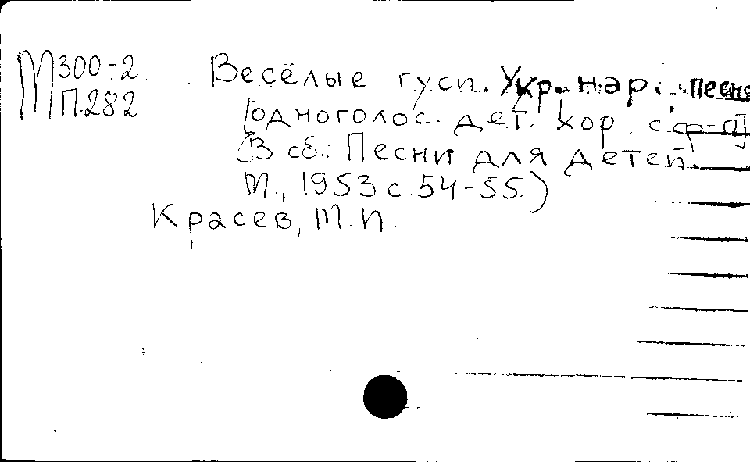 М300-2 Весёлые гуси. Укр. нар. песня
П282 [одноголос. дет. хор с ф-п]
(В сб.: Песни для детей.
М., 1953 с. 54-55.)
Красев, М.И.